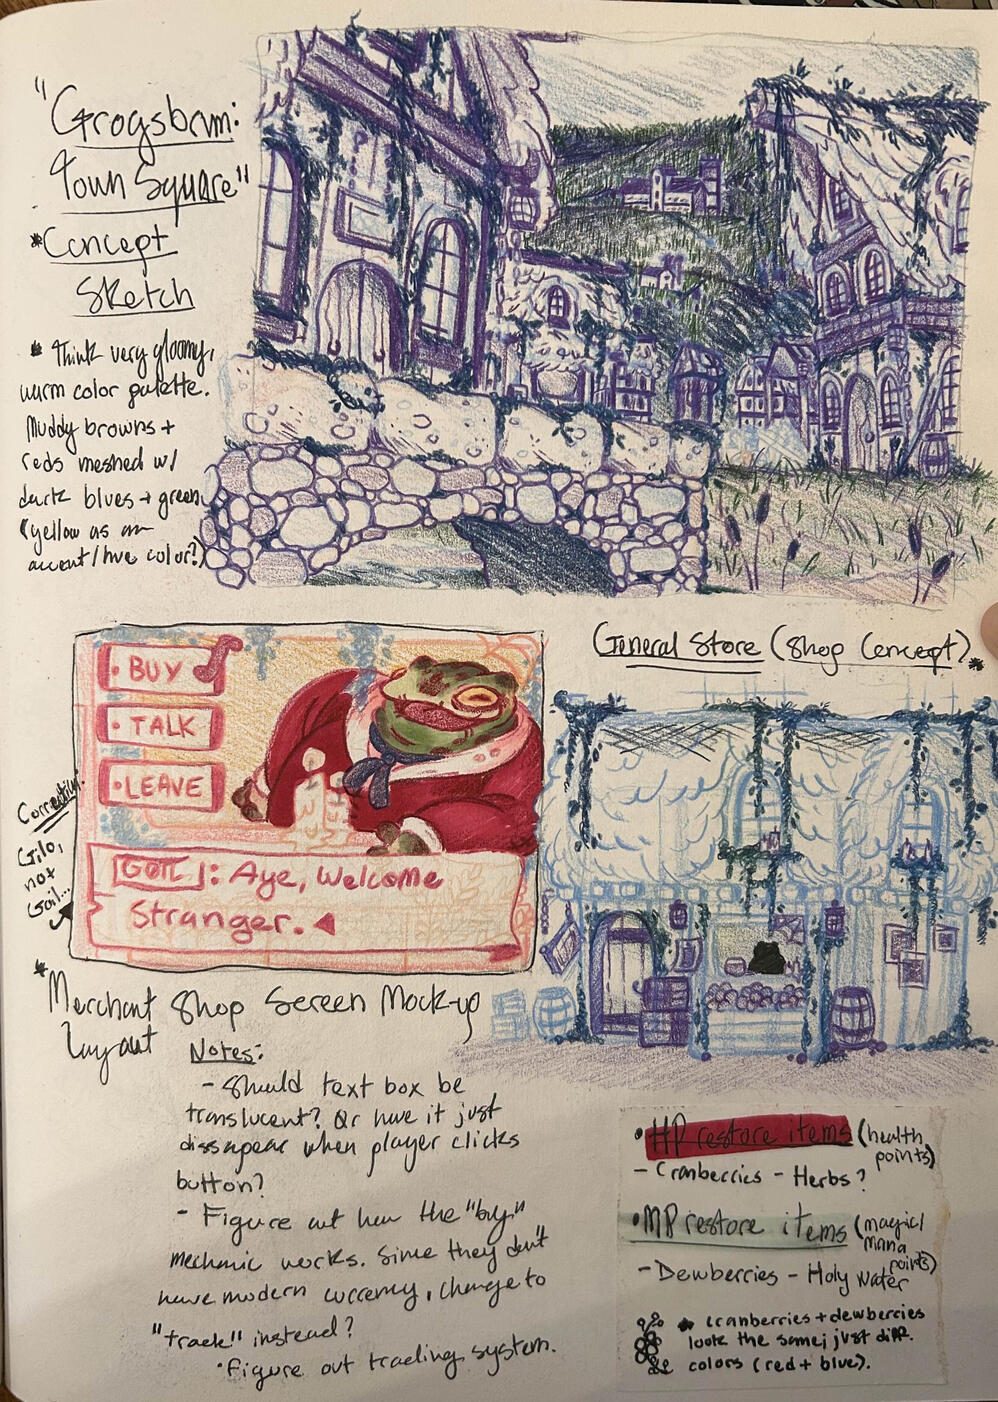 "Grogsbrim:
Town Square"
*Concept
Sketch
* Think very gloomy,
warm color palette.
Muddy browns +
reds meshed w/
dark blues + green
(yellow as an
accent/hue color?)
• BUY
• TALK
• LEAVE
: Aye, Welcome
Stranger. ◀
Gilo,
not
Goil...
*Merchant Shop Screen Mock-up
Layout
Notes:
- Should text box be
translucent? Or have it just
dissapear when player clicks
button?
- Figure out how the "buy"
mechanic works. Since they don't
have modern currency, change to
"trade" instead?
• Figure out trading system.
General Store (Shop Concept) *
• HP restore items (health
points)
- Cranberries - Herbs?
• MP restore items (magic/
mana
points)
- Dewberries - Holy Water
* cranberries + dewberries
look the same; just diff.
colors (red + blue).